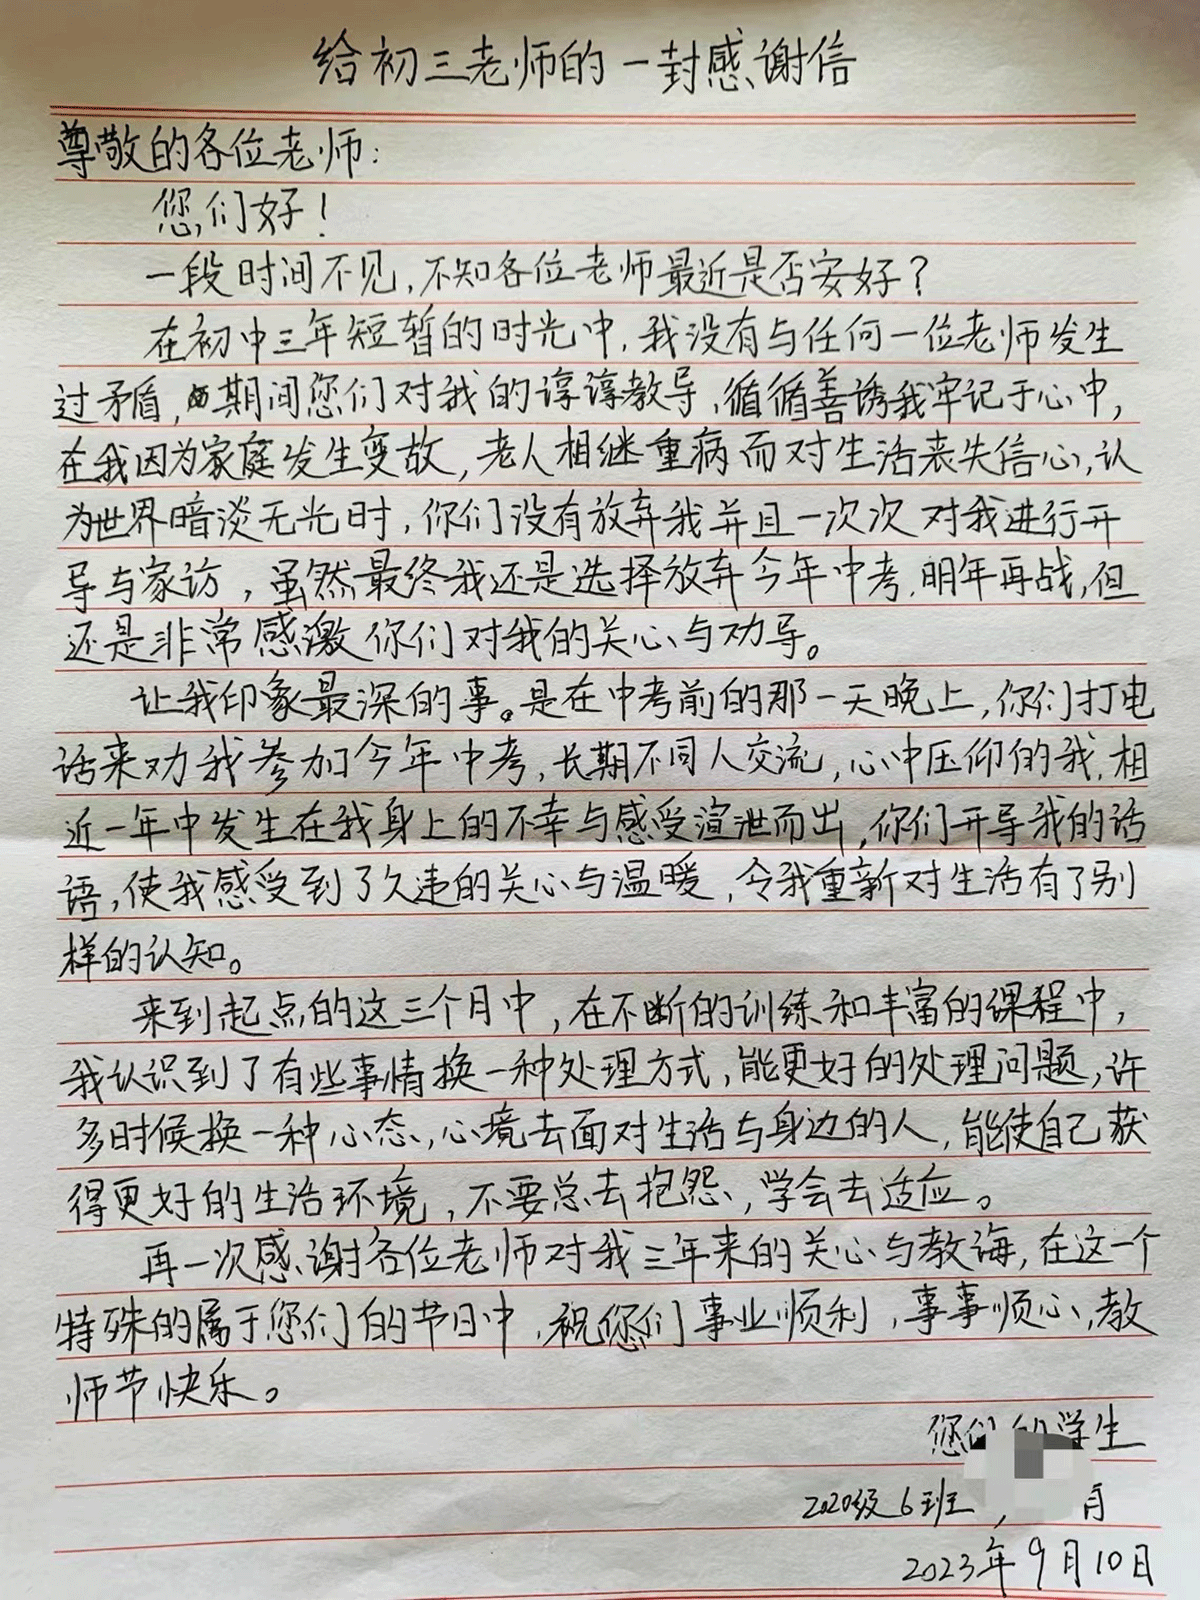 给初三老师的一封感谢信
尊敬的各位老师：
您们好！
一段时间不见，不知各位老师最近是否安好？
在初中三年短暂的时光中，我没有与任何一位老师发生
过矛盾，期间您们对我的谆谆教导，循循善诱我牢记于心中，
在我因为家庭发生变故，老人相继重病而对生活丧失信心，认
为世界暗淡无光时，你们没有放弃我并且一次次对我进行开
导与家访，虽然最终我还是选择放弃今年中考，明年再战，但
还是非常感激你们对我的关心与劝导。
让我印象最深的事。是在中考前的那一天晚上，你们打电
话来劝我参加今年中考，长期不同人交流，心中压仰的我，相
近一年中发生在我身上的不幸与感受渲泄而出，你们开导我的话
语，使我感受到了久违的关心与温暖，令我重新对生活有了别
样的认知。
来到起点的这三个月中，在不断的训练和丰富的课程中，
我认识到了有些事情换一种处理方式，能更好的处理问题，许
多时候换一种心态，心境去面对生活与身边的人，能使自己获
得更好的生活环境，不要总去抱怨，学会去适应。
再一次感谢各位老师对我三年来的关心与教诲，在这一个
特殊的属于您们的节日中，祝您们事业顺利，事事顺心，教
师节快乐。
您们的学生
2020级6班，
2023年9月10日